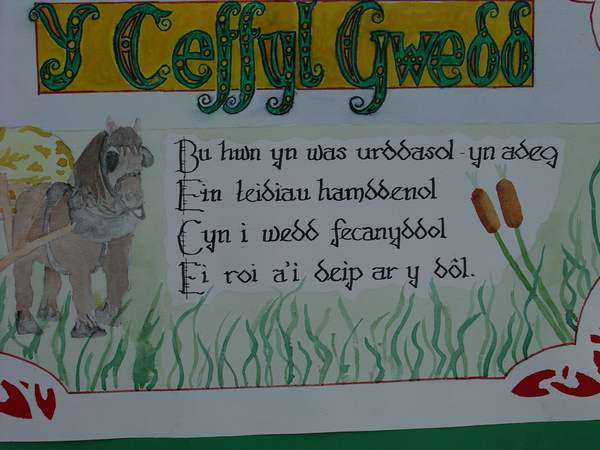 Y Ceffyl Gwedd
Bu hwn yn was urddasol - yn adeg
Ein teidiau hamddenol
Cyn i wedd fecanyddol
Ei roi a'i deip ar y dôl.